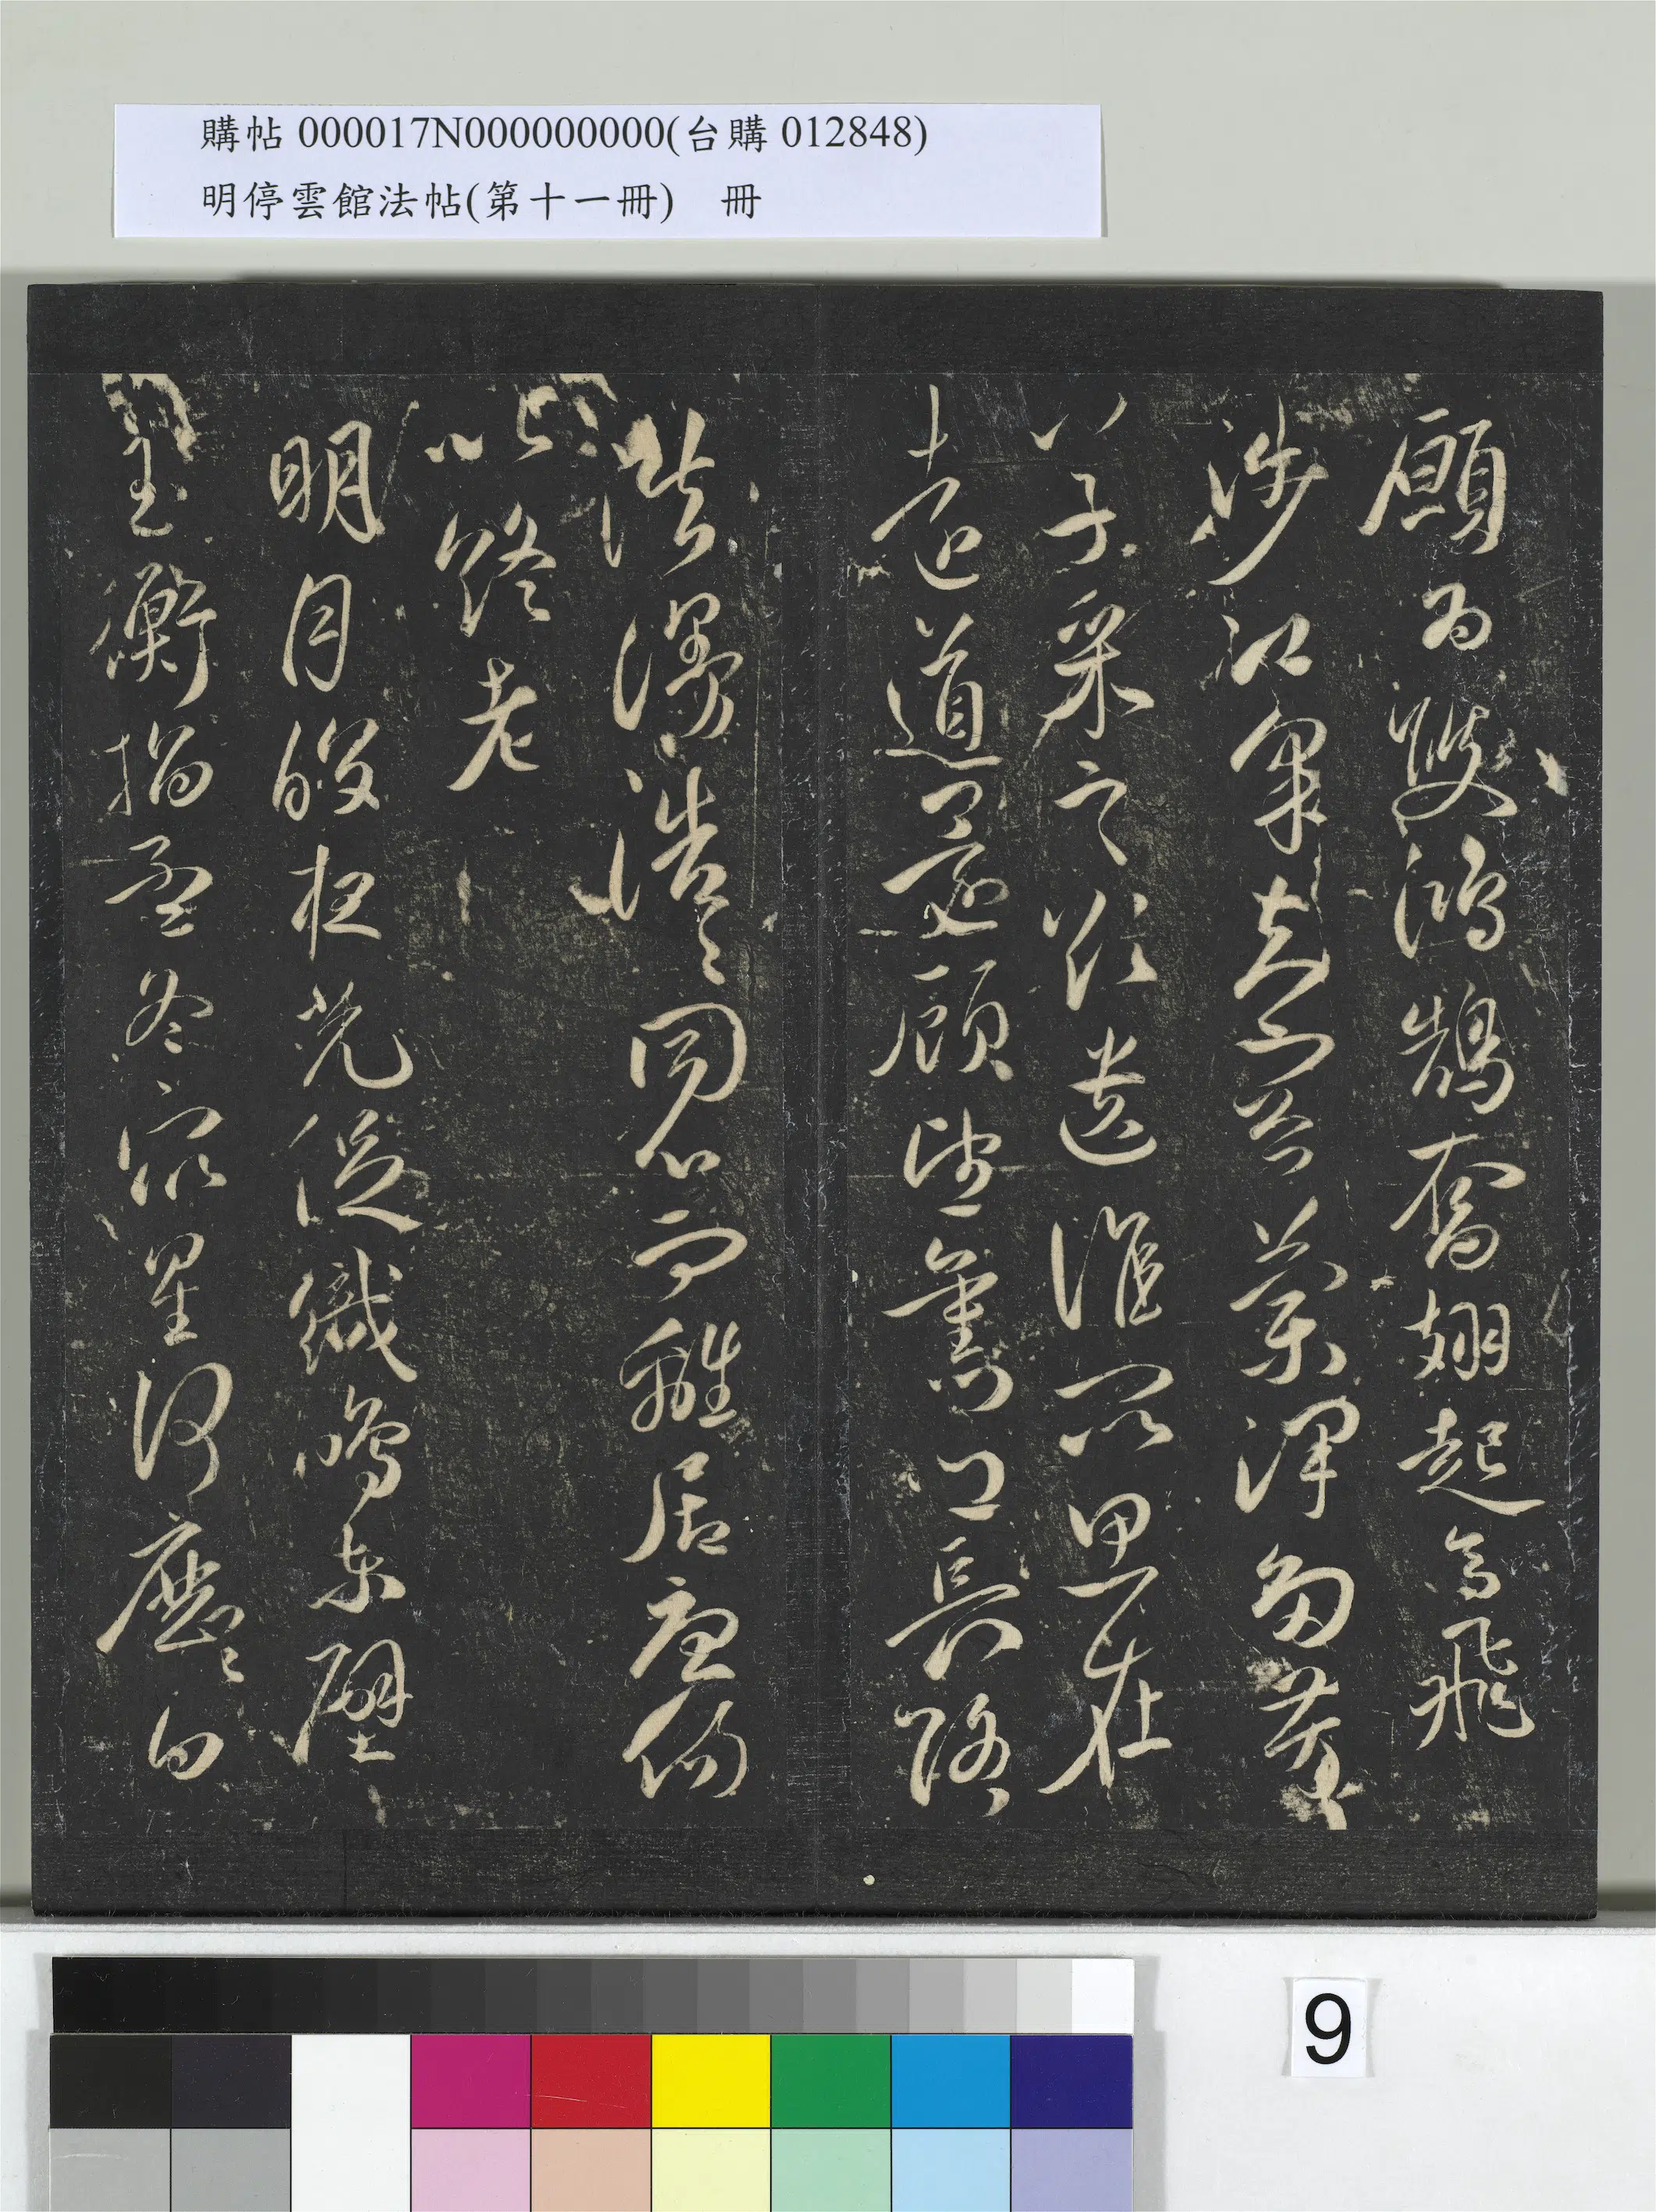 購帖 000017N000000000(台購 012848)
明停雲館法帖(第十一冊)　冊
願為雙鴻鵠奮翅起高飛
涉江采芙蓉蘭澤多芳
草采之欲遺誰所思在
遠道還顧望舊鄉長路
浩漫浩〻同心而離居憂傷
以終老
明月皎夜光促織鳴東壁
玉衡指孟冬眾星何歷〻白
9